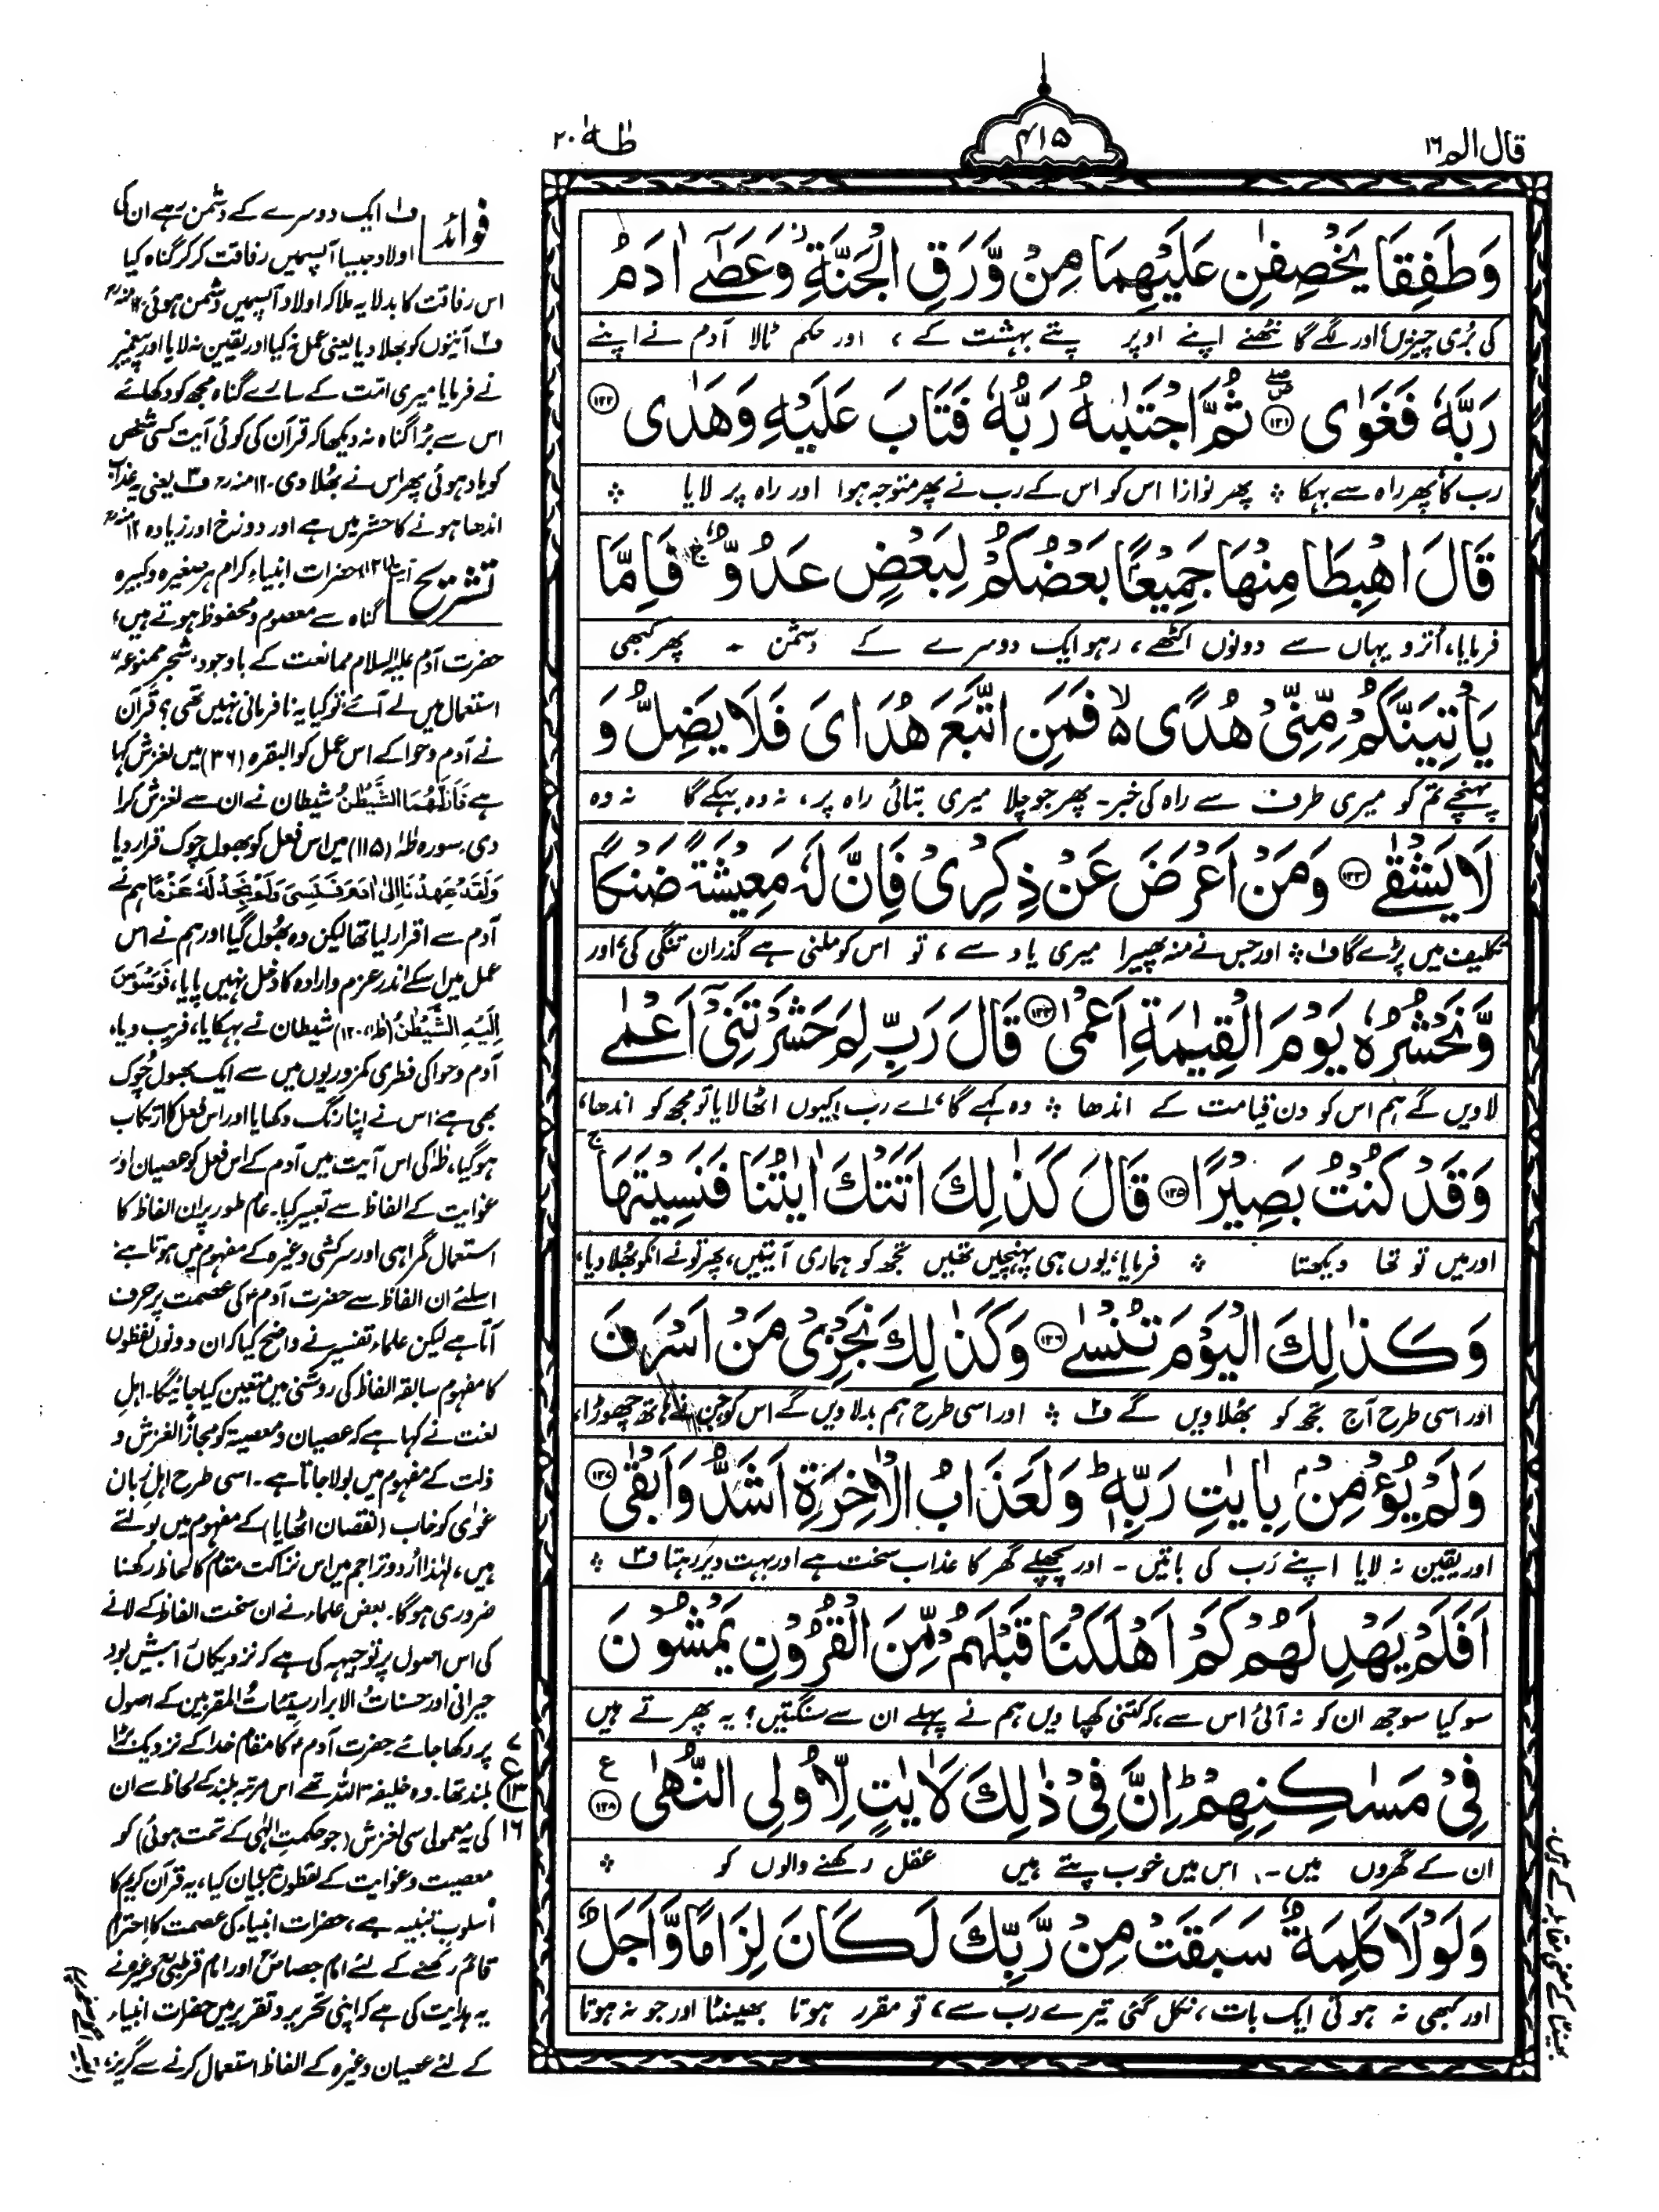 قال الم ۱۶
۴۱۵
طٰهٰ ۲۰
وَطَفِقَا يَخْصِفٰنِ عَلَيْهِمَا مِنْ وَّرَقِ الْجَنَّةِ وَعَصٰٓى اٰدَمُ
کی بُری چیزیں اور لگے گانٹھنے اپنے اوپر پتے بہشت کے ، اور حکم ٹالا آدم نے اپنے
رَبَّهٗ فَغَوٰى ۝۱۲۱ ثُمَّ اجْتَبٰىهُ رَبُّهٗ فَتَابَ عَلَيْهِ وَهَدٰى ۝۱۲۲
رب کا پھر راہ سے بہکا ÷ پھر نوازا اس کو اس کے رب نے پھر متوجہ ہوا اور راہ پر لایا ÷
قَالَ اهْبِطَا مِنْهَا جَمِيْعًۢا بَعْضُكُمْ لِبَعْضٍ عَدُوٌّ ۚ فَاِمَّا
فرمایا، اُترو یہاں سے دونوں اکٹھے ، رہو ایک دوسرے کے دشمن ۔ پھر کبھی
يَاْتِيَنَّكُمْ مِّنِّيْ هُدًى ۙ فَمَنِ اتَّبَعَ هُدَايَ فَلَا يَضِلُّ وَ
پہنچے تم کو میری طرف سے راہ کی خبر۔ پھر جو چلا میری بتائی راہ پر ، نہ وہ بہکے گا نہ وہ
لَا يَشْقٰى ۝۱۲۳ وَمَنْ اَعْرَضَ عَنْ ذِكْرِيْ فَاِنَّ لَهٗ مَعِيْشَةً ضَنْكًا
تکلیف میں پڑے گا ف۱ ÷ اور جس نے منہ پھیرا میری یاد سے ، تو اس کو ملنی ہے گذران تنگی کی، اور
وَّنَحْشُرُهٗ يَوْمَ الْقِيٰمَةِ اَعْمٰى ۝۱۲۴ قَالَ رَبِّ لِمَ حَشَرْتَنِيْٓ اَعْمٰى
لاویں گے ہم اس کو دن قیامت کے اندھا ÷ وہ کہے گا، اے رب! کیوں اٹھا لایا تو مجھ کو اندھا،
وَقَدْ كُنْتُ بَصِيْرًا ۝۱۲۵ قَالَ كَذٰلِكَ اَتَتْكَ اٰيٰتُنَا فَنَسِيْتَهَا ۚ
اور میں تو تھا دیکھتا ÷ فرمایا، یوں ہی پہنچیں تھیں تجھ کو ہماری آیتیں، پھر تو نے انکو بھلا دیا،
وَكَذٰلِكَ الْيَوْمَ تُنْسٰى ۝۱۲۶ وَكَذٰلِكَ نَجْزِيْ مَنْ اَسْرَفَ
اور اسی طرح آج تجھ کو بھلا ویں گے ف۲ ÷ اور اسی طرح ہم بدلا دیں گے اس کو جن نے ہاتھ چھوڑا،
وَلَمْ يُؤْمِنْۢ بِاٰيٰتِ رَبِّهٖ ؕ وَلَعَذَابُ الْاٰخِرَةِ اَشَدُّ وَاَبْقٰى ۝۱۲۷
اور یقین نہ لایا اپنے رب کی باتیں ۔ اور پچھلے گھر کا عذاب سخت ہے اور بہت دیر رہتا ف۳ ÷
اَفَلَمْ يَهْدِ لَهُمْ كَمْ اَهْلَكْنَا قَبْلَهُمْ مِّنَ الْقُرُوْنِ يَمْشُوْنَ
سو کیا سوجھ ان کو نہ آئی اس سے، کہ کتنی کھپا دیں ہم نے پہلے ان سے سنگتیں؟ یہ پھرتے ہیں
فِيْ مَسٰكِنِهِمْ ؕ اِنَّ فِيْ ذٰلِكَ لَاٰيٰتٍ لِّاُولِي النُّهٰى ۝۱۲۸ ع
ان کے گھروں میں ۔ اس میں خوب پتے ہیں عقل رکھنے والوں کو ÷
وَلَوْلَا كَلِمَةٌ سَبَقَتْ مِنْ رَّبِّكَ لَكَانَ لِزَامًا وَّاَجَلٌ
اور کبھی نہ ہوتی ایک بات ، نکل گئی تیرے رب سے ، تو مقرر ہوتا بھینٹا اور جو نہ ہوتا
فوائد
ف۱ ایک دوسرے کے دشمن رہے ان کی
اولاد جیسا آپسمیں رفاقت کر کر گناہ کیا
اس رفاقت کا بدلا یہ ملا کہ اولاد آپسمیں دشمن ہوئی ۱۲ منہ رح
ف۲ آیتوں کو بھلا دیا یعنی عمل نہ کیا اور یقین نہ لایا اور پیغمبر
نے فرمایا میری امت کے سارے گناہ مجھ کو دکھلائے
اس سے بڑا گناہ نہ دیکھا کہ قرآن کی کوئی آیت کسی شخص
کو یاد ہوئی پھر اس نے بھلا دی ۔ ۱۲ منہ رح ف۳ یعنی یہ عذاب
اندھا ہونے کا حشر میں ہے اور دوزخ اور زیادہ ۱۲ منہ رح
تشریح
آیت (۱۲۱) حضرات انبیاء کرام ہر صغیرہ وکبیرہ
گناہ سے معصوم و محفوظ ہوتے ہیں،
حضرت آدم علیہ السلام ممانعت کے باوجود ”شجر ممنوعہ“
استعمال میں لے آئے تو کیا یہ نافرمانی نہیں تھی؟ قرآن
نے آدم و حوا کے اس عمل کو البقرہ (۳۶) میں لغزش کہا
ہے فَاَزَلَّهُمَا الشَّيْطٰنُ شیطان نے ان سے لغزش کرا
دی۔ سورہ طٰہٰ (۱۱۵) میں اس فعل کو بھول چوک قرار دیا
وَلَقَدْ عَهِدْنَآ اِلٰٓى اٰدَمَ فَنَسِيَ وَلَمْ نَجِدْ لَهٗ عَزْمًا ہم نے
آدم سے اقرار لیا تھا لیکن وہ بھول گیا اور ہم نے اس
عمل میں اسکے اندر عزم و ارادہ کا دخل نہیں پایا، فَوَسْوَسَ
اِلَيْهِ الشَّيْطٰنُ (طٰہٰ، ۱۲۰) شیطان نے بہکایا، فریب دیا،
آدم و حوا کی فطری کمزوریوں میں سے ایک بھول چوک
بھی ہے اس نے اپنا رنگ دکھایا اور اس فعل کا ارتکاب
ہو گیا، طٰہٰ کی اس آیت میں آدم کے اس فعل کو عصیان اور
غوایت کے الفاظ سے تعبیر کیا۔ عام طور پر ان الفاظ کا
استعمال گمراہی اور سرکشی وغیرہ کے مفہوم میں ہوتا ہے
اسلئے ان الفاظ سے حضرت آدمؑ کی عصمت پر حرف
آتا ہے لیکن علماء تفسیر نے واضح کیا کہ ان دونوں لفظوں
کا مفہوم سابقہ الفاظ کی روشنی میں متعین کیا جائیگا۔ اہل
لغت نے کہا ہے کہ عصیان و معصیۃ کو مجازاً لغزش و
ذلت کے مفہوم میں بولا جاتا ہے ۔ اسی طرح اہل زبان
غوٰی کو خاب (نقصان اٹھایا) کے مفہوم میں بولتے
ہیں، لہٰذا اُردو تراجم میں اس نزاکت مقام کا لحاظ رکھنا
ضروری ہوگا۔ بعض علماء نے ان سخت الفاظ کے لانے
کی اس اصول پر توجیہہ کی ہے کہ نزدیکاں را بیش بود
حیرانی اور حسنات الابرار سیئات المقربین کے اصول
پر رکھا جائے حضرت آدمؑ کا مقام خدا کے نزدیک بڑا
بلند تھا۔ وہ خلیفۃ اللہ تھے اس مرتبہ بلند کے لحاظ سے ان
کی یہ معمولی سی لغزش (جو حکمت الٰہی کے تحت ہوئی) کو
معصیت و غوایت کے لفظوں میں بیان کیا، یہ قرآن کریم کا
اُسلوب تنبیہ ہے، حضرات انبیاء کی عصمت کا احترام
قائم رکھنے کے لئے امام جصاصؒ اور امام قرطبیؒ وغیرہ نے
یہ ہدایت کی ہے کہ اپنی تحریر و تقریر میں حضرات انبیاء
کے لئے عصیان وغیرہ کے الفاظ استعمال کرنے سے گریز،
۷
ع ۱۳
۱۶